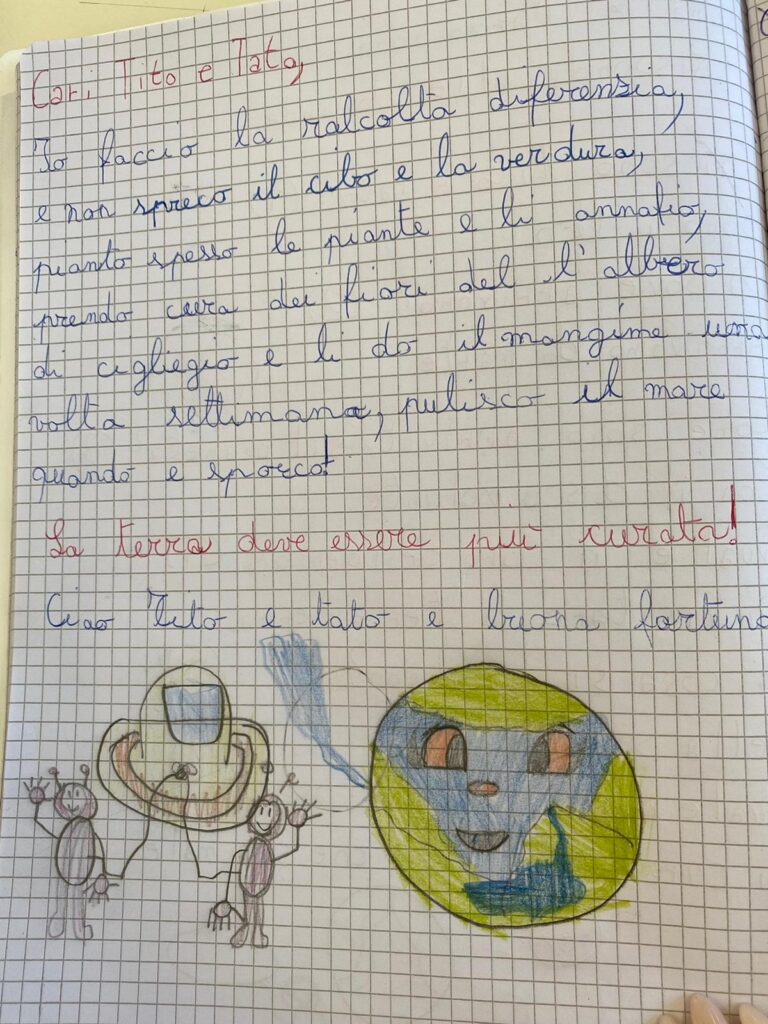 Cari Tito e Tato,
Io faccio la ralcolta diferenzia,
e non spreco il cibo e la verdura,
pianto spesso le piante e li annafio,
prendo cura dei fiori del l'albero
di cigliegio e li do il mangime una
volta settimana, pulisco il mare
quando e sporco!
La terra deve essere più curata!
Ciao Tito e tato e buona fortuna